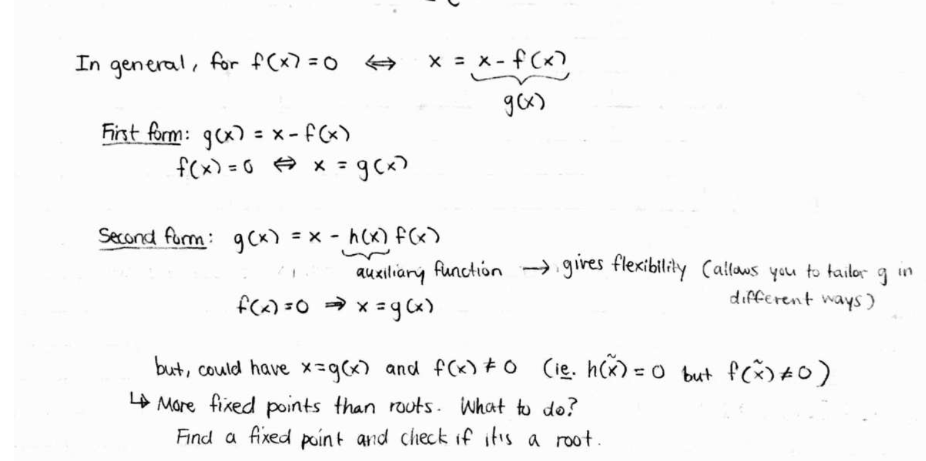 In general, for f(x) = 0 ⇔ x = x - f(x)
g(x)
First form: g(x) = x - f(x)
f(x) = 0 ⇔ x = g(x)
Second form: g(x) = x - h(x) f(x)
auxiliary function → gives flexibility (allows you to tailor g in
different ways)
f(x) = 0 ⇒ x = g(x)
but, could have x = g(x) and f(x) ≠ 0 (ie. h(x̃) = 0 but f(x̃) ≠ 0)
↳ More fixed points than roots. What to do?
Find a fixed point and check if it is a root.